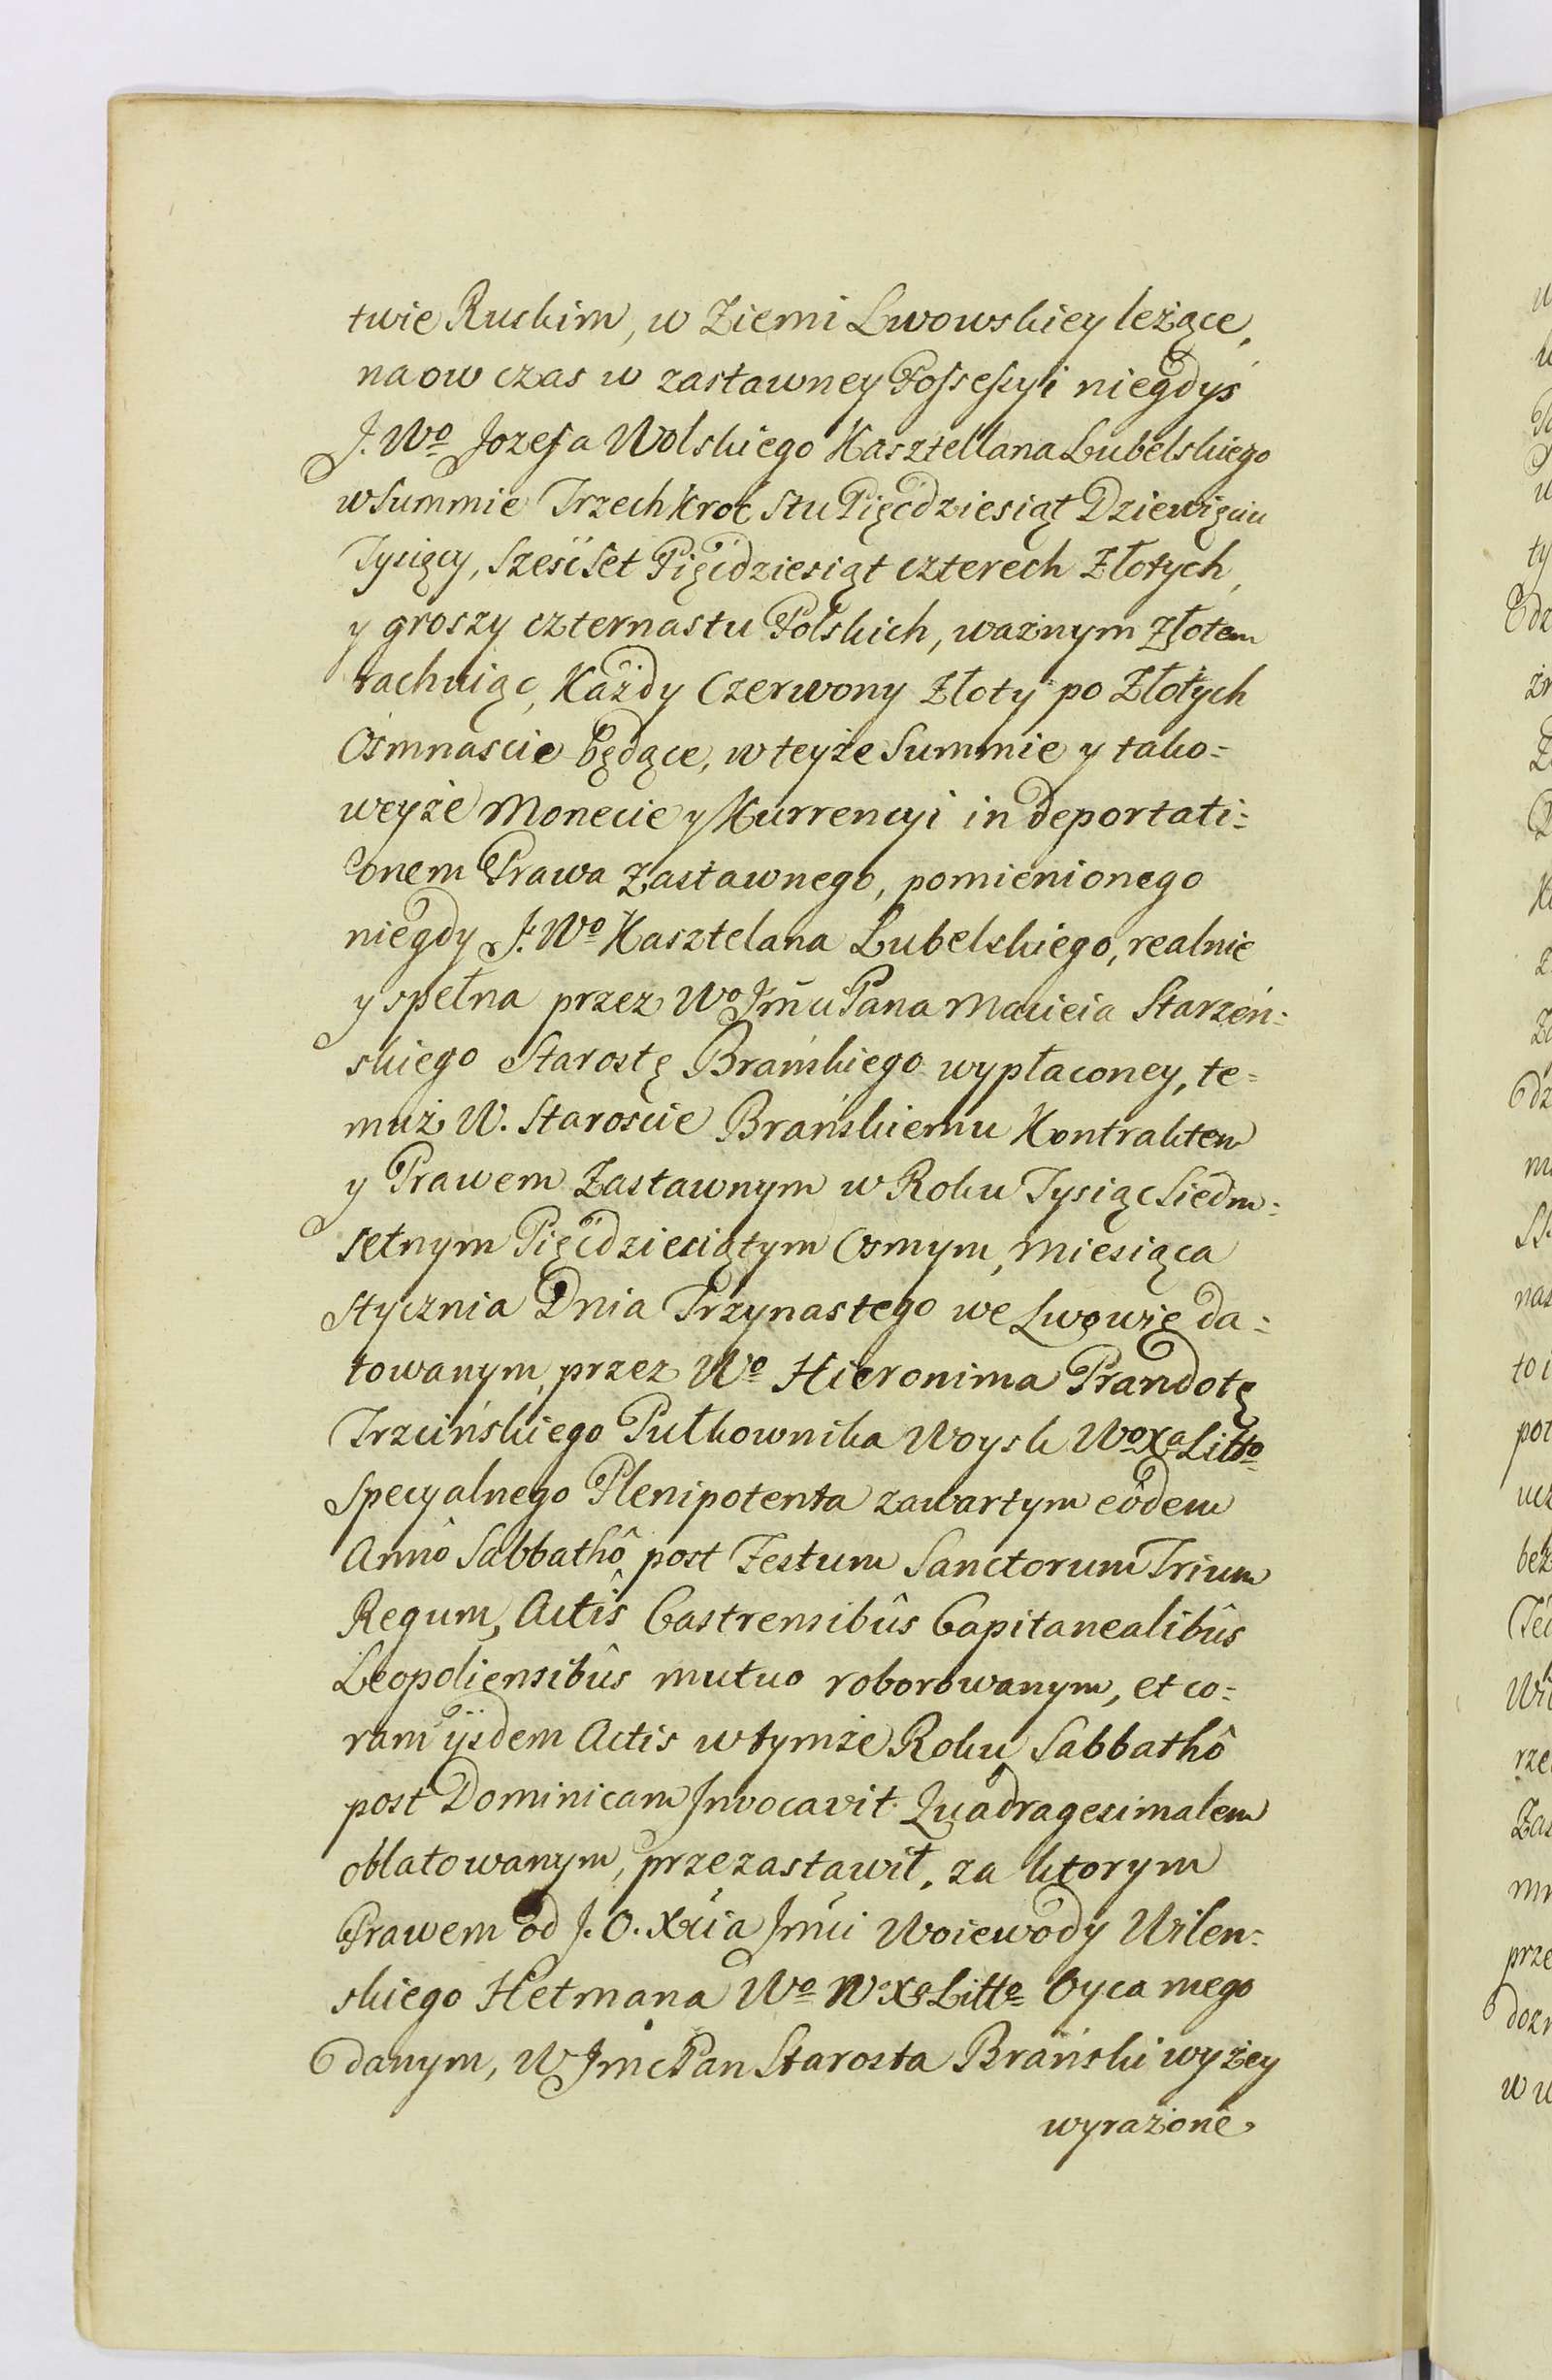 twie Ruskim, w Ziemi Lwowskiey leżące,
na ow czas w zastawney Possessyi niegdyś
J. Wo Jozefa Wolskiego Kasztellana Lubelskiego
w Summie Trzechkroć Stu Pięćdziesiąt Dziewięciu
Tysięcy, Sześćset Pięćdziesiąt czterech Złotych,
y groszy czternastu Polskich, ważnym Złotem
rachuiąc, Każdy Czerwony Złoty po Złotych
Osmnaście będące, w teyże Summie y tako=
weyże Monecie y Kurrencyi in deportati=
onem Prawa Zastawnego, pomienionego
niegdy J. Wo Kasztelana Lubelskiego, realnie
y spełna przez Wo Jmći Pana Macieia Starzeń=
skiego Starostę Brańskiego wypłaconey, te=
muż W. Staroście Brańskiemu Kontraktem
y Prawem Zastawnym w Roku Tysiąc Siedm=
setnym Pięćdziesiątym Osmym, Miesiąca
Stycznia Dnia Trzynastego we Lwowie da=
towanym, przez Wo Hieronima Prandotę
Trzcińskiego Pułkownika Woysk Wo Xa Litto
Specyalnego Plenipotenta zawartym eôdem
Annô Sabbathô post Festum Sanctorum Trium
Regum, Actîs Castrensibûs Capitanealibûs
Leopoliensibûs mutuo roborowanym, et co=
ram ijsdem Actis w tymże Roku Sabbathô
post Dominicam Invocavit Quadragesimalem
oblatowanym, przezastawił, za ktorym
Prawem od J. O. Xcia Jmći Woiewody Wilen=
skiego Hetmana Wo W Xo Litto Oyca mego
danym, W Jmc Pan Starosta Brański wyżey
wyrażone